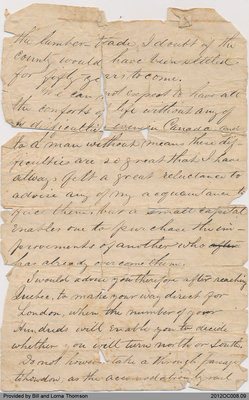 the lumber trade, I doubt if the
county would have been settled
for fifty years to come.
We cannot expect to have all
the comforts of life without any of
its difficulties even in Canada and
to a man without means these dif
ficulties are so great that I have
always felt a great reluctance to
advise any of my acquaintance to
face them, but a small capital
enables one to purchase the im-
provements of another who after
has already overcome them.
I would advise you therefore after reaching
Quebec, to make your way direct for
London, when the number of your
Hundreds will enable you to decide
whether you will turn north or South.
Do not however take a through passage
to London, as the accomodation by rail
Provided by Bill and Lorna Thomson
2012OC008.09